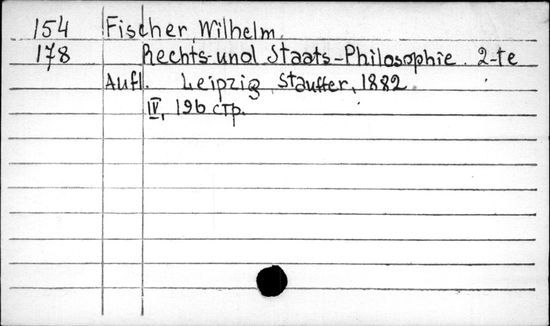 154 Fischer, Wilhelm.
178 Rechts- und Staats-Philosophie. 2-te
Aufl. Leipzig, Stauffer, 1882.
IV, 196 стр.